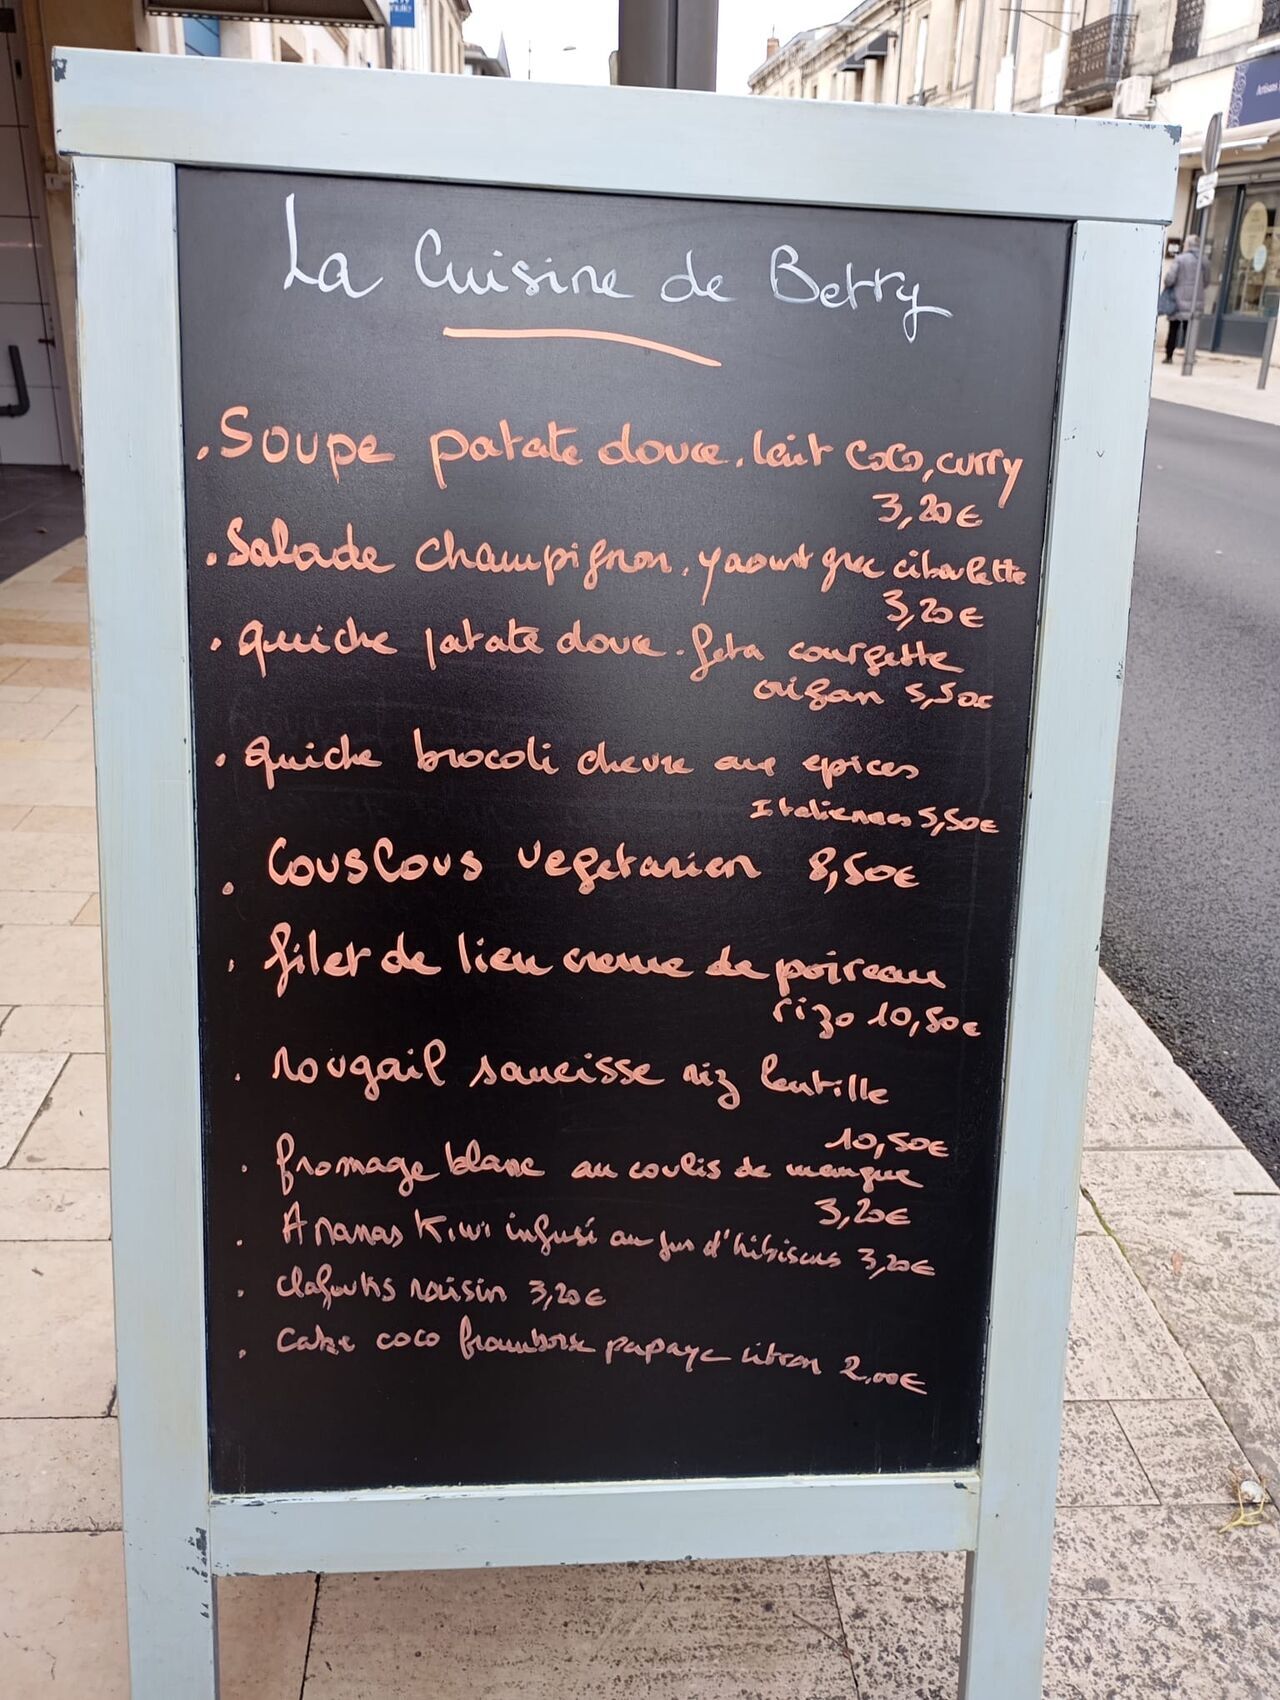 La Cuisine de Betty
. Soupe patate douce. lait coco, curry
3,20€
. Salade champignon. yaourt grec ciboulette
3,20€
. quiche patate douce. feta courgette
origan 5,50€
. quiche brocoli chevre aux epices
Italiennes 5,50€
. Couscous vegetarien 8,50€
. filet de lieu creme de poireau
rizo 10,50€
. rougail saucisse riz lentille
10,50€
. fromage blanc au coulis de mangue
3,20€
. Ananas kiwi infusé au jus d'hibiscus 3,20€
. clafoutis raisin 3,20€
. cake coco framboise papaye citron 2,00€